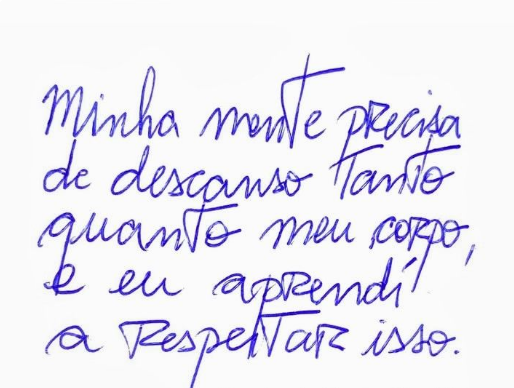 Minha mente precisa
de descanso tanto
quanto meu corpo,
e eu aprendi
a respeitar isso.